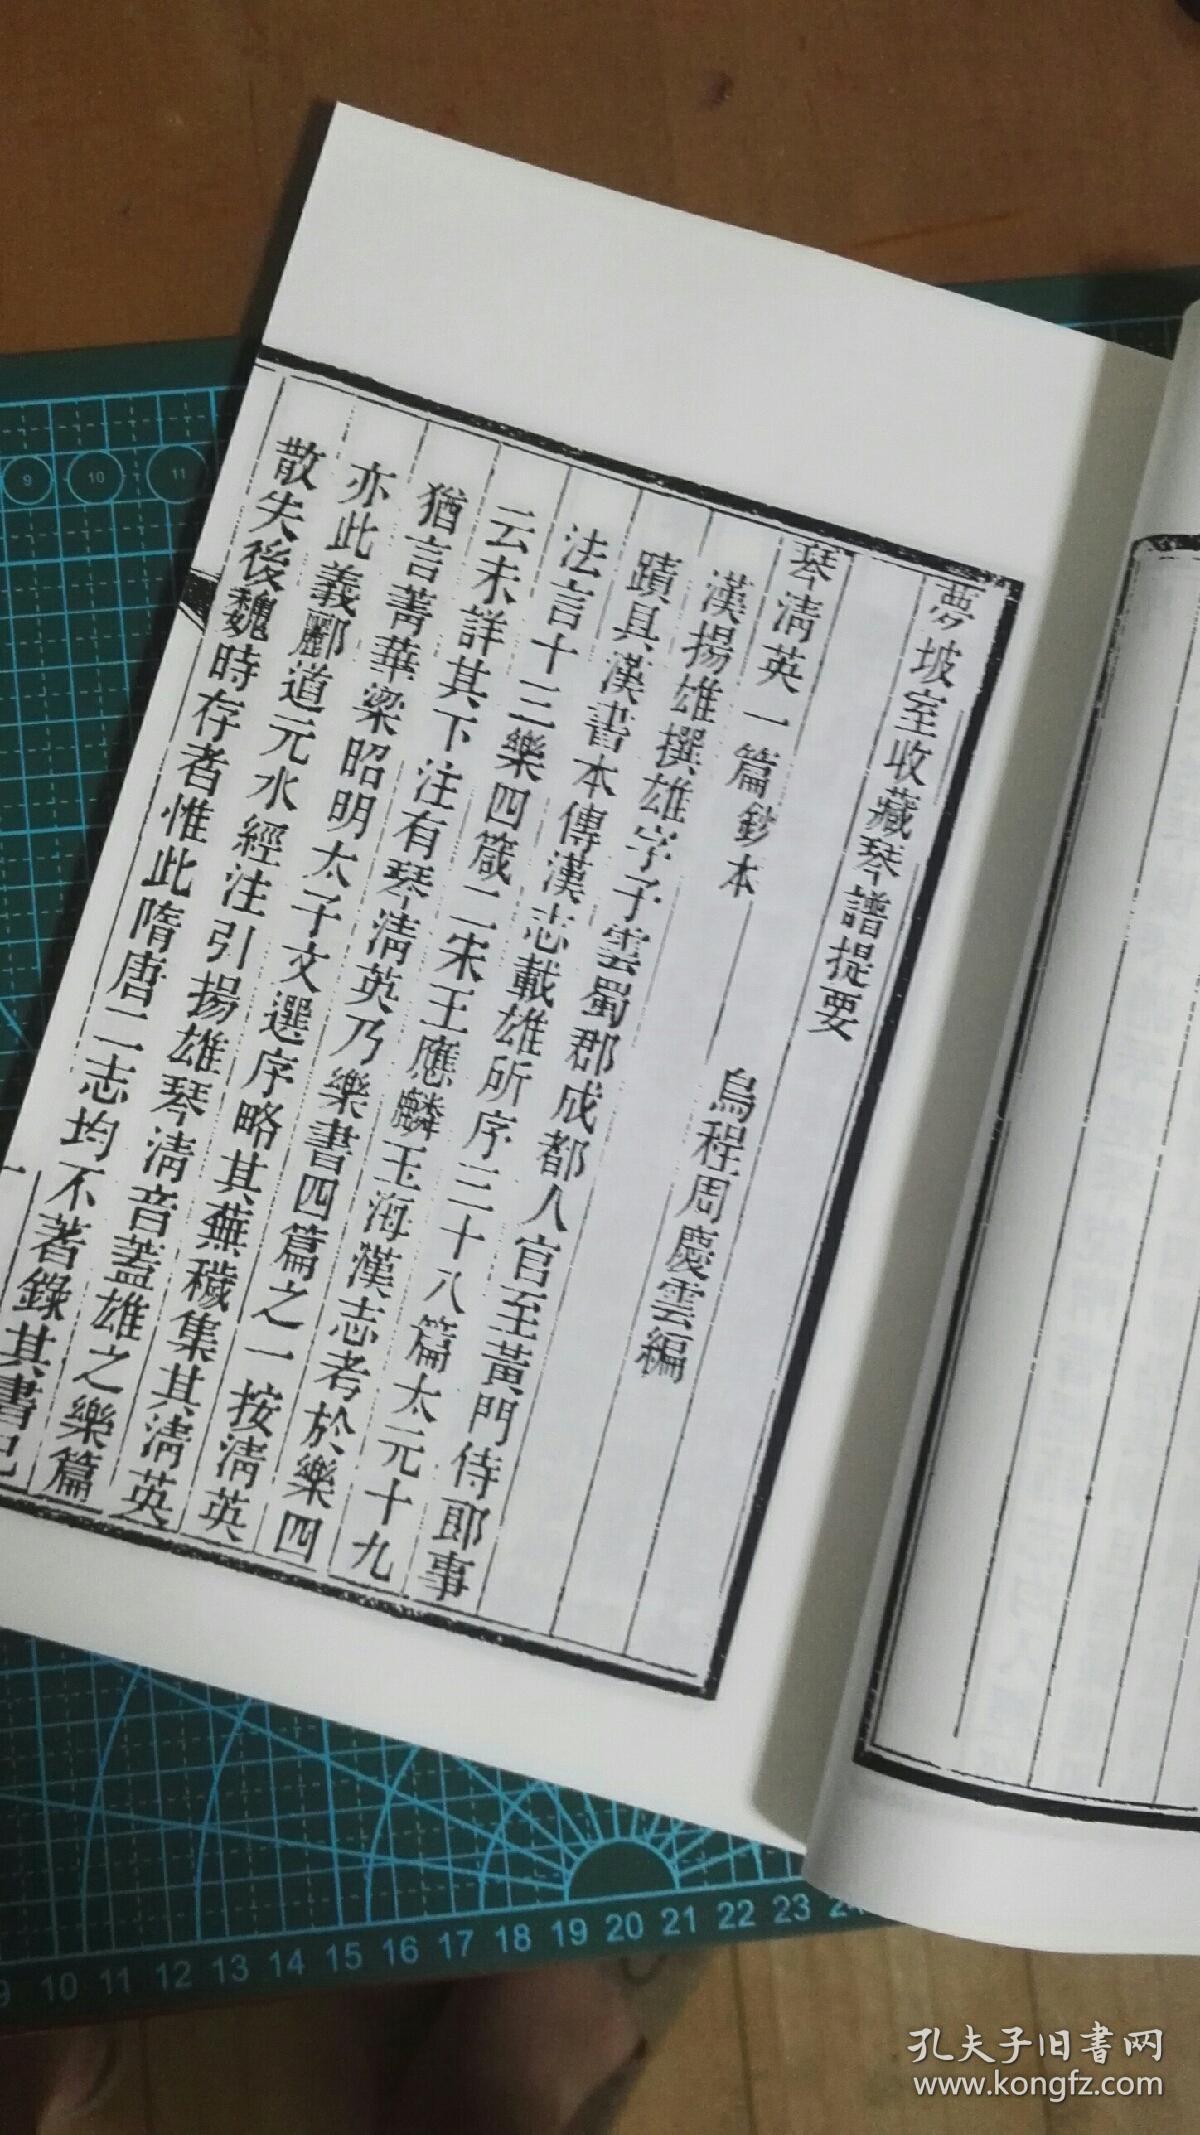 夢坡室收藏琴譜提要
烏程周慶雲編
琴淸英一篇鈔本
漢揚雄撰雄字子雲蜀郡成都人官至黃門侍郎事
蹟具漢書本傳漢志載雄所序三十八篇太元十九
法言十三樂四箴二宋王應麟玉海漢志考於樂四
云未詳其下注有琴淸英乃樂書四篇之一按淸英
猶言菁華梁昭明太子文選序略其蕪穢集其淸英
亦此義酈道元水經注引揚雄琴淸音蓋雄之樂篇
散失後魏時存者惟此隋唐二志均不著錄其書已
一
9 10 11
9 10 11 12 13 14 15 16 17 18 19 20 21 22 23
孔夫子旧书网
www.kongfz.com